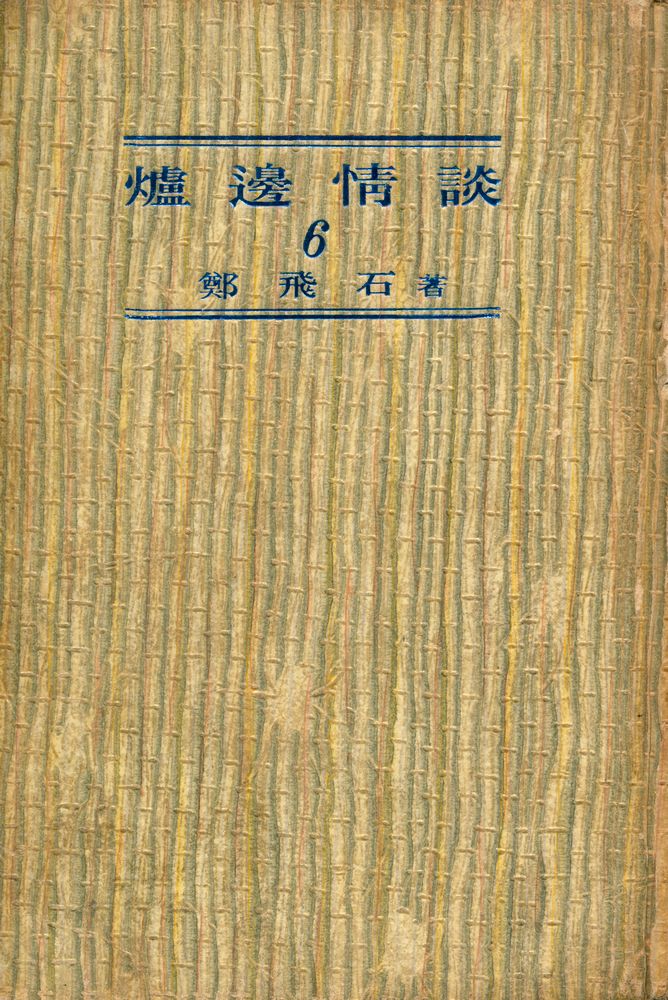 爐邊情談
6
鄭飛石著